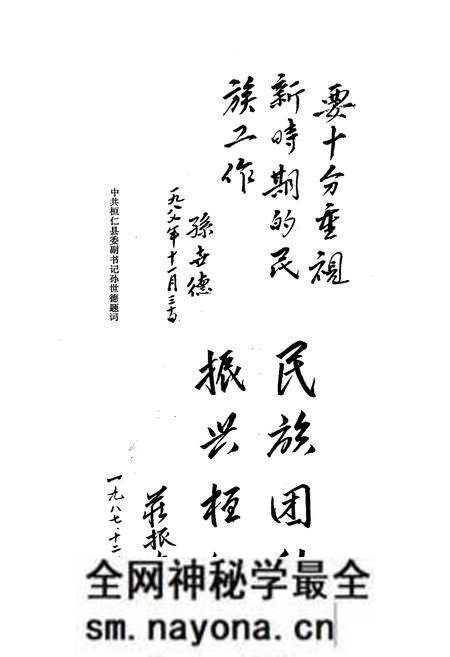 要十分重視
新時期的民
族工作
孫世德
一九八七年十一月三
中共桓仁县委副书记孙世德题词
民族团
振兴桓
莊振
一九八七.十二
全网神秘学最全
sm.nayona.cn